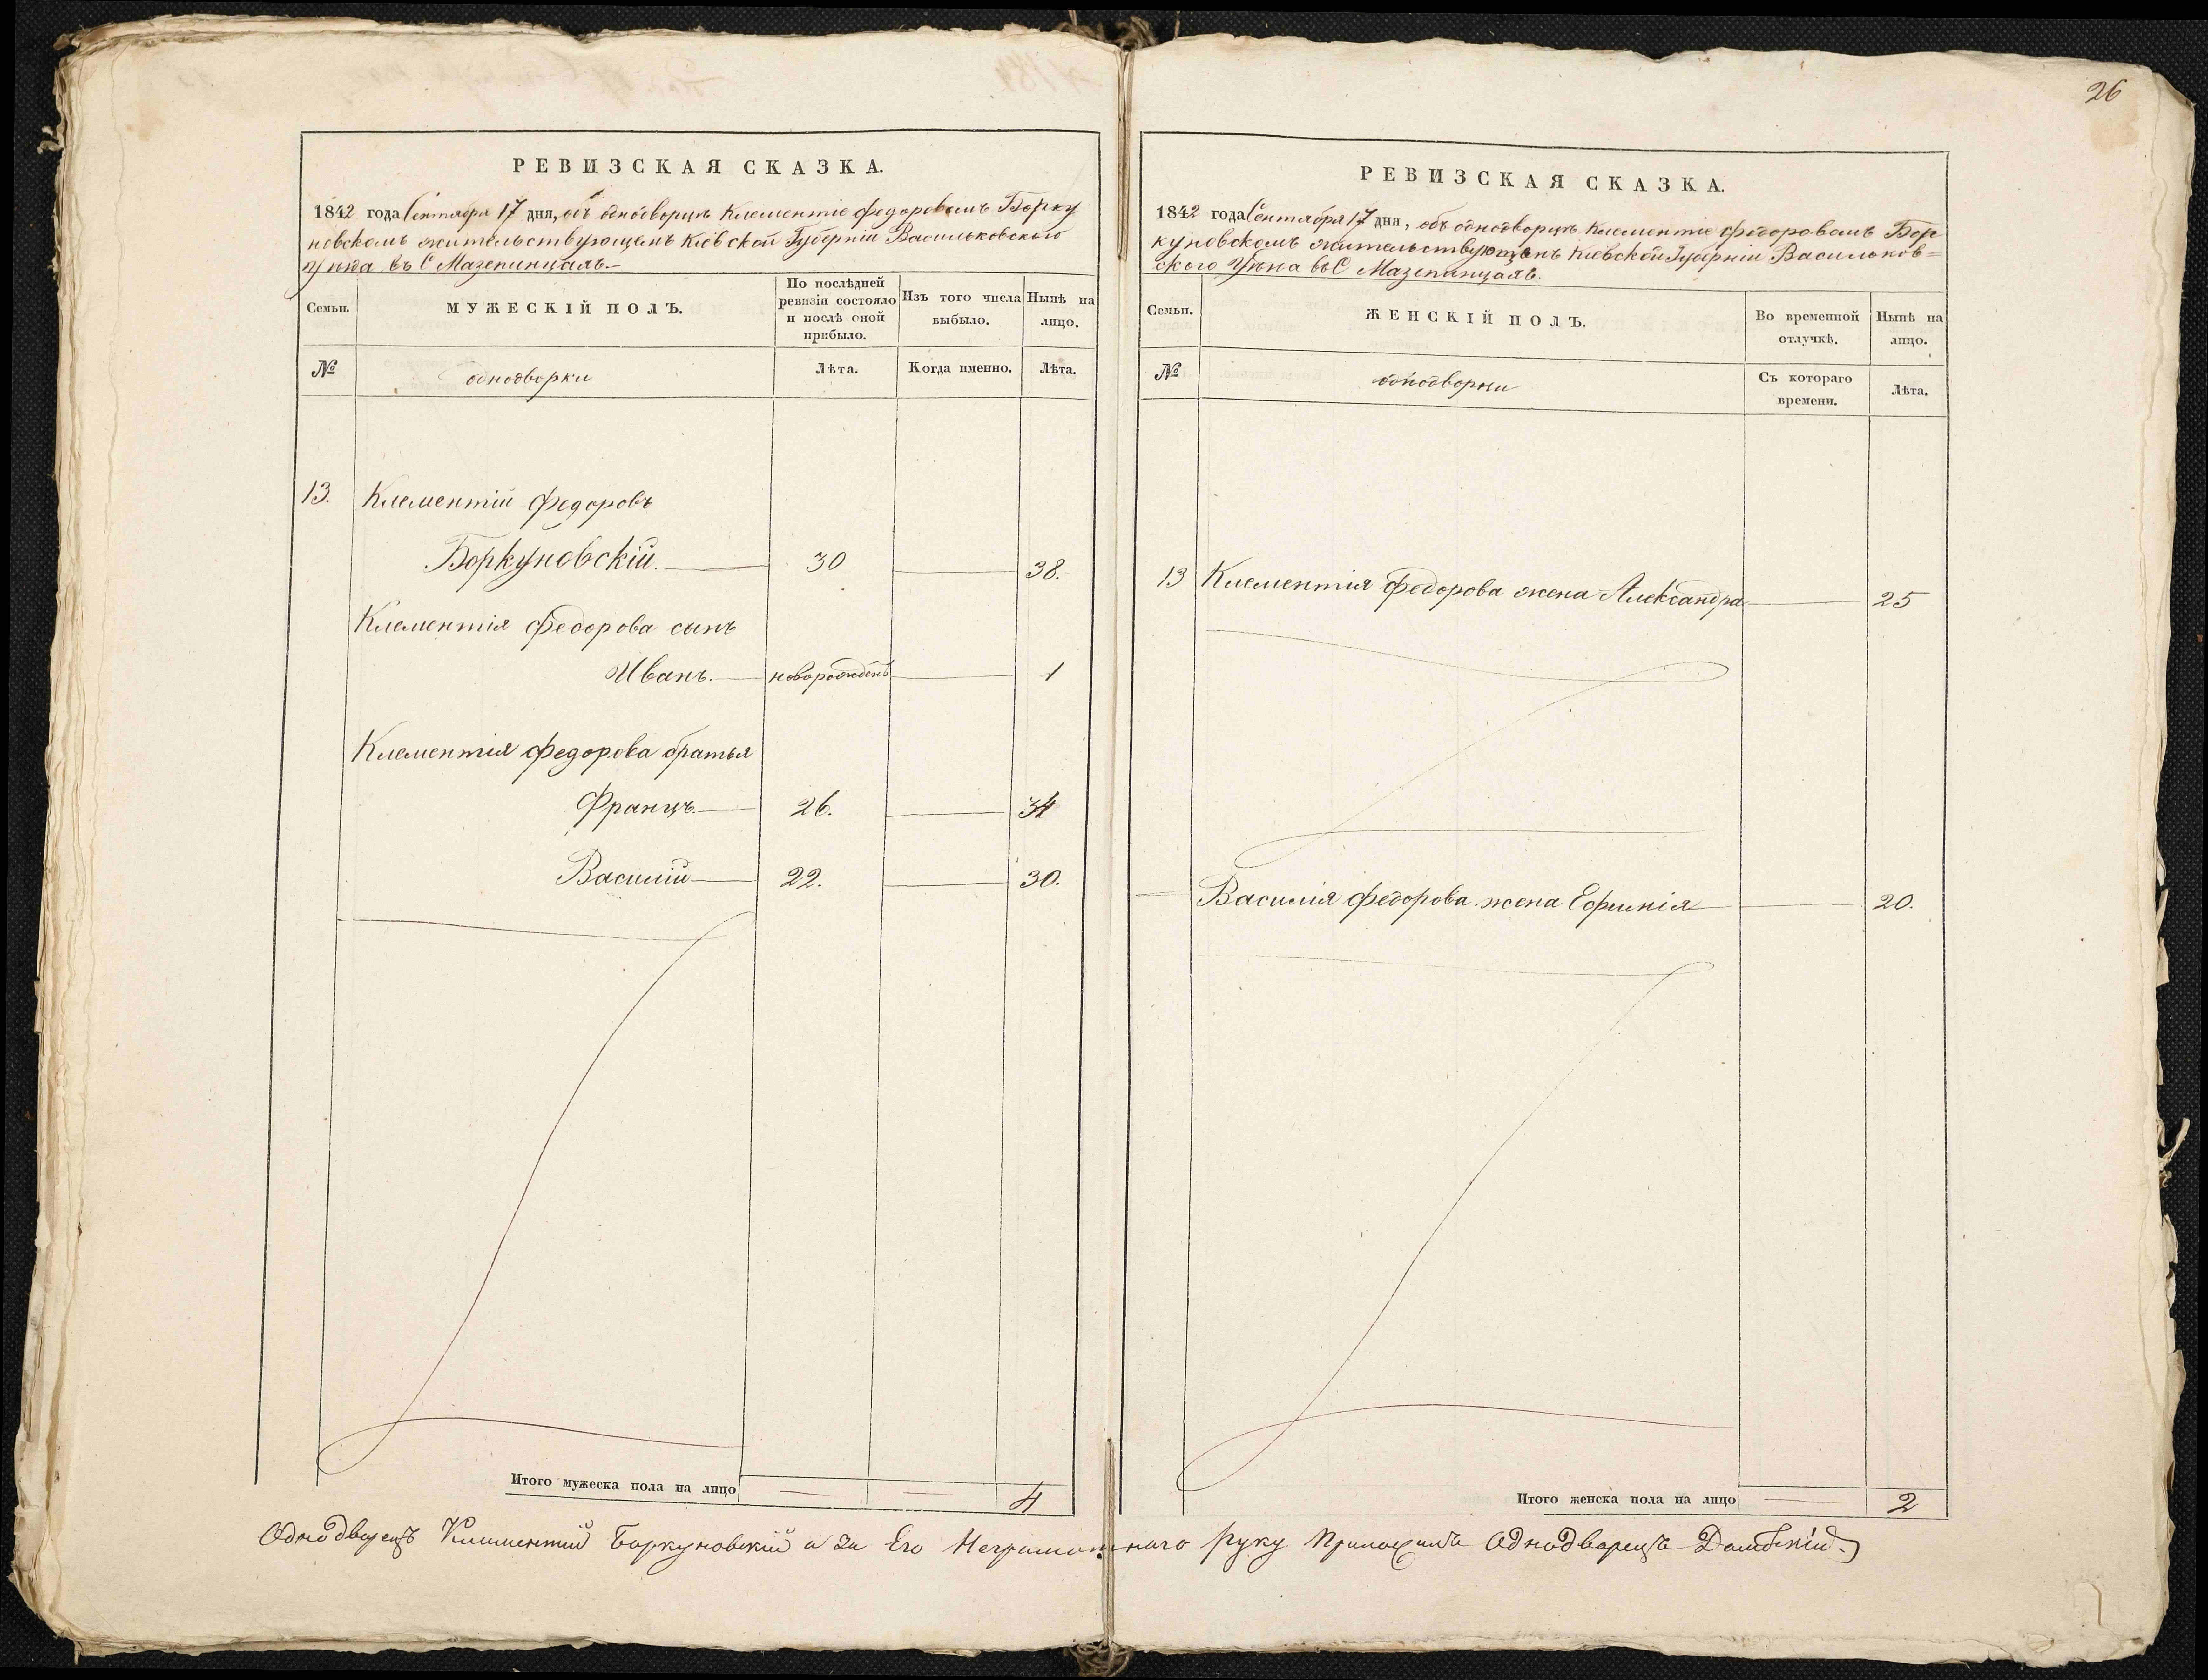 26
РЕВИЗСКАЯ СКАЗКА.
1842 года Сентября 17 дня, объ однодворцѣ Клементіе Федоровомъ Борку
новскомъ жительствующемъ Кіевской Губерніи Васильковскаго
Уѣзда въ С Мазепинцахъ.—
Семьи.
МУЖЕСКІЙ ПОЛЪ.
По послѣдней ревизіи состояло и послѣ оной прибыло.
Изъ того числа выбыло.
Нынѣ на лицо.
№
однодворки
Лѣта.
Когда именно.
Лѣта.
13. Клементій Федоровъ
Боркуновскій. 30 38.
Клементія Федорова сынъ
Иванъ. новорожденъ 1
Клементія Федорова братья
Францъ 26. 34
Василій 22. 30.
Итого мужеска пола на лицо 4
РЕВИЗСКАЯ СКАЗКА.
1842 года Сентября 17 дня, объ однодворцѣ Клементіе Федоровомъ Бор
куновскомъ жительствующемъ Кіевской Губерніи Васильков=
ского Уѣзда въ С Мазепинцахъ.
Семьи.
ЖЕНСКІЙ ПОЛЪ.
Во временной отлучкѣ.
Нынѣ на лицо.
№
однодворки
Съ котораго времени.
Лѣта.
13 Клементія Федорова жена Александра 25
Василія Федорова жена Ефимія 20.
Итого женска пола на лицо 2
Однодворецъ Климентий Боркуновский а За Его Неграмотнаго Руку Приложилъ Однодворецъ Домбскій